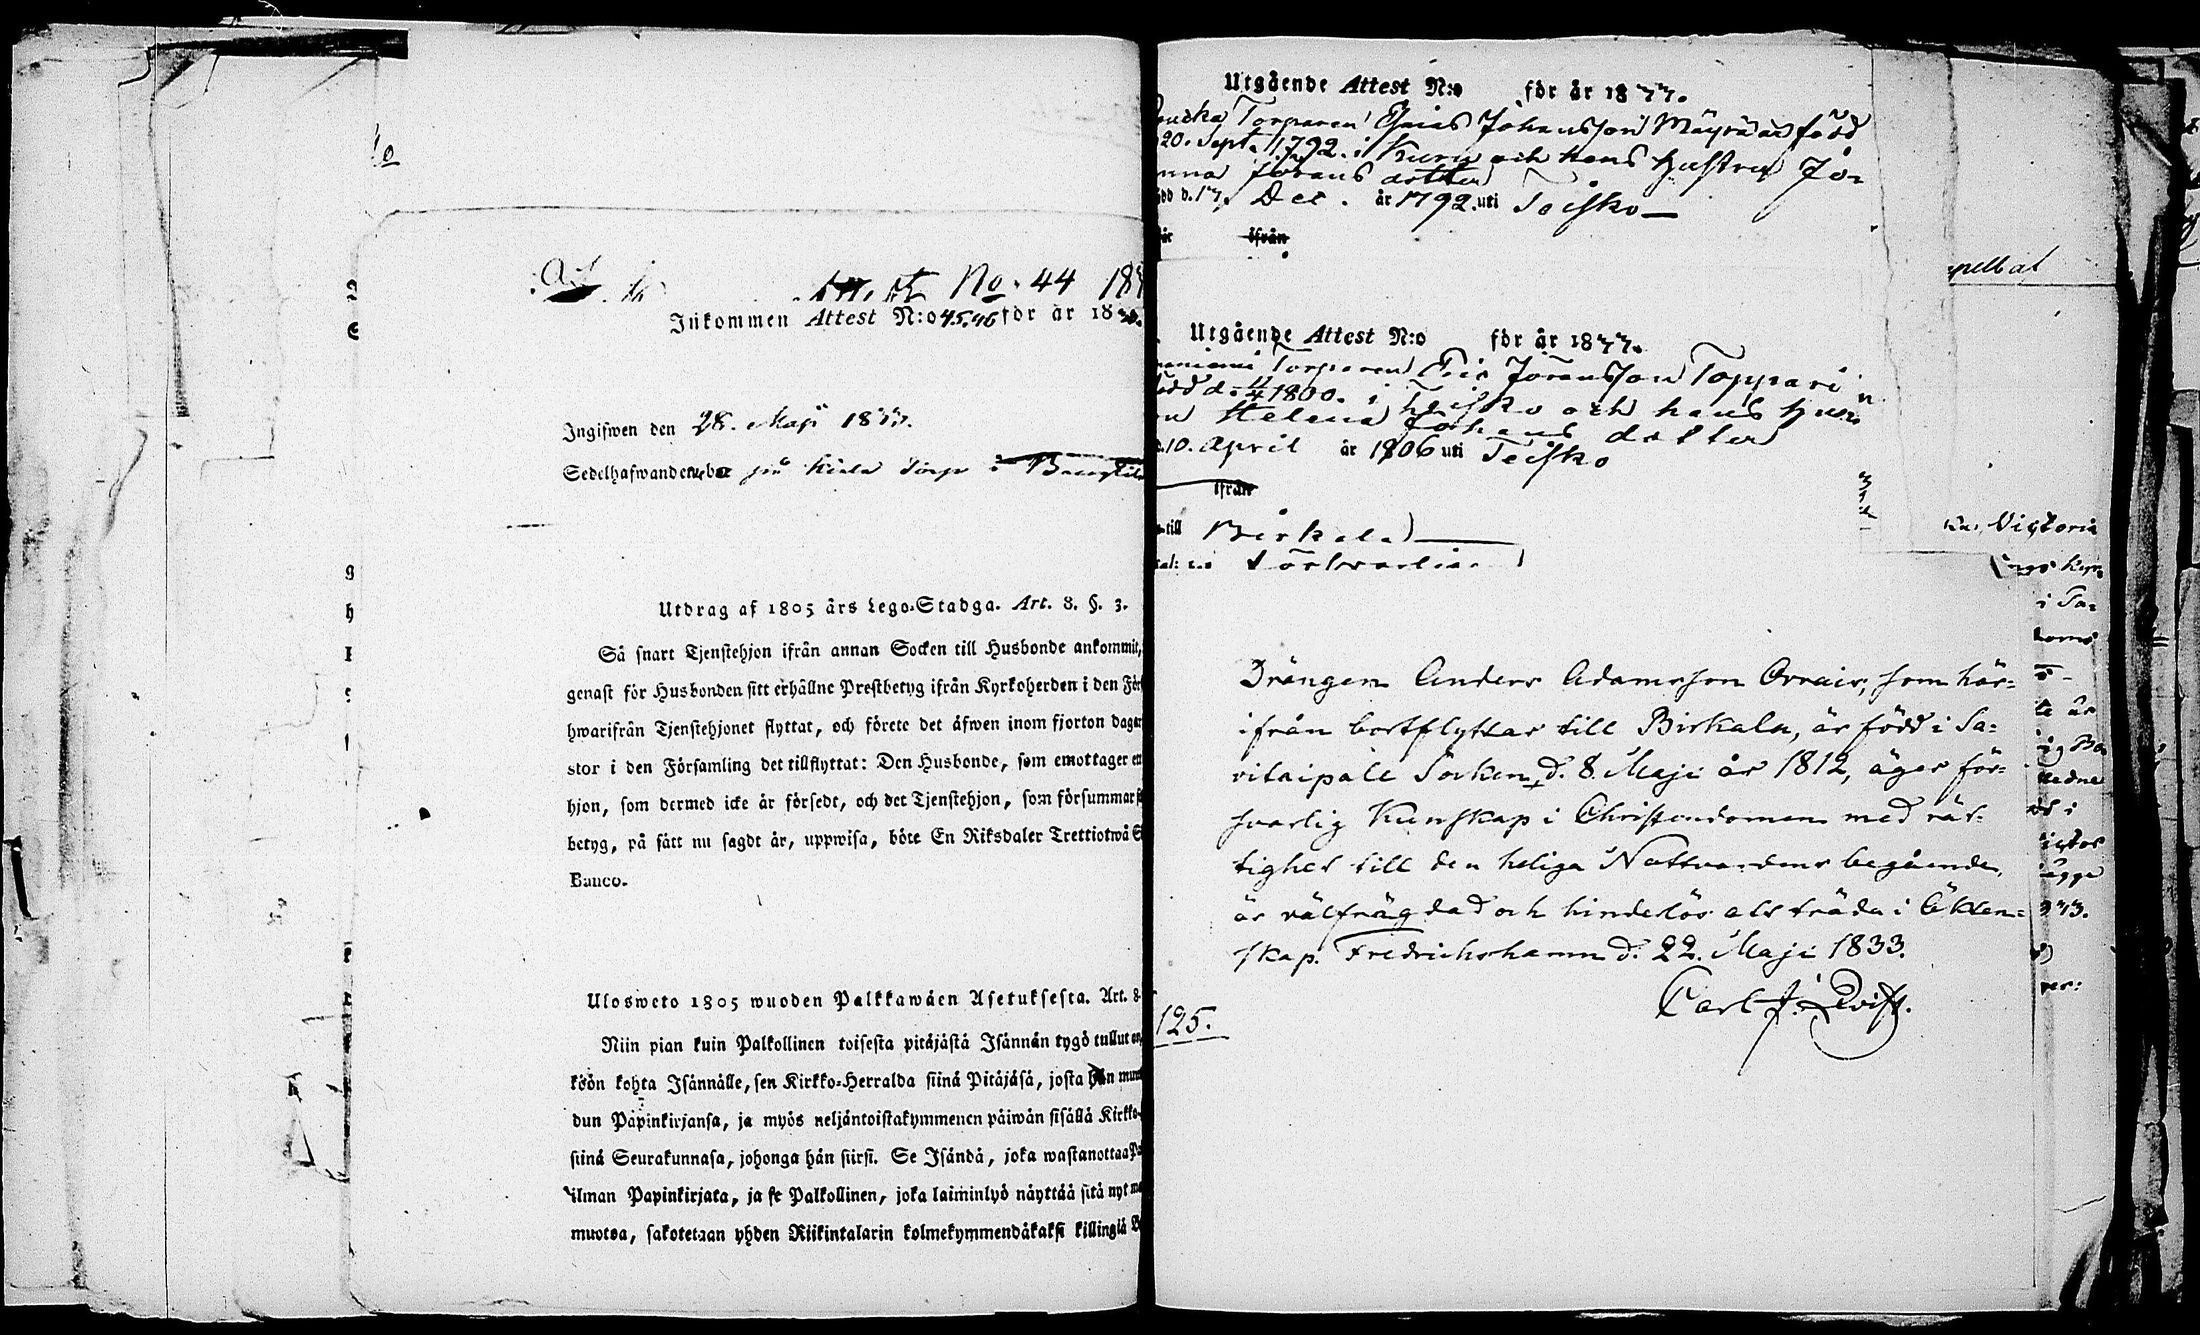 No. 44 18
Inkommen Attest N:o 45.46 för år 18
Ingifwen den 28. Maji 1833.
Sedelhafwanden på Torp i
Utdrag af 1805 års Lego-Stadga. Art. 8. §. 3.
Så snart Tjenstehjon ifrån annan Socken till Husbonde ankommit,
genast för Husbonden sitt erhållne Prestbetyg ifrån Kyrkoherden i den För
hwarifrån Tjenstehjonet flyttat, och förete det äfwen inom fjorton dagar
stor i den Församling det tillflyttat: Den Husbonde, som emottager
hjon, som dermed icke är försedt, och det Tjenstehjon, som försummar
betyg, på sätt nu sagdt är, uppwisa, böte En Riksdaler Trettiotwå S
Banco.
Ulosweto 1805 wuoden Palkkawäen Asetuksesta. Art. 8.
Niin pian kuin Palkollinen toisesta pitäjästä Isännän tygö tullut on,
köön kohta Isännälle, sen Kirkko-Herralda siinä Pitäjäsä, josta hän
dun Papinkirjansa, ja myös neljäntoistakymmenen päiwän sisällä Kirkko-
siinä Seurakunnasa, johonga hän siirsi. Se Isändä, joka wastanottaa
ilman Papinkirjata, ja se Palkollinen, joka laiminlyö näyttää sitä nyt
muotoa, sakotetaan yhden Riikintalarin kolmekymmendäkaksi killingiä
Utgående Attest N:o för år 1877.
Torparen Esaias Johansson Mäyrä är född
20. Sept. 1792. i Kuru och hans hustru Jo-
Jörans dotter
d. 17. Dec. år 1792. uti Teisko
ifrån
Utgående Attest N:o för år 1877.
Torparen Eric Jöransson Toppari
född d. 4/4 1800. i Teisko och hans hus
Helena Johans dotter
10. April år 1806 uti Teisko
ifrån
till Birkala
Drängen Anders Adamsson Orrain, som här-
ifrån bortflyttar till Birkala, är född i Sa-
vitaipale Socken d. 8 Maji år 1812, äger för-
svarlig Kunskap i Christendomen med rät-
tighet till den heliga Nattvardens begående,
är välfrägdad och hinderlös att träda i Äkten-
skap. Fredrichshamn d. 22. Maji 1833.
Carl J. Qvist.
125.
Victoria
i Sa-